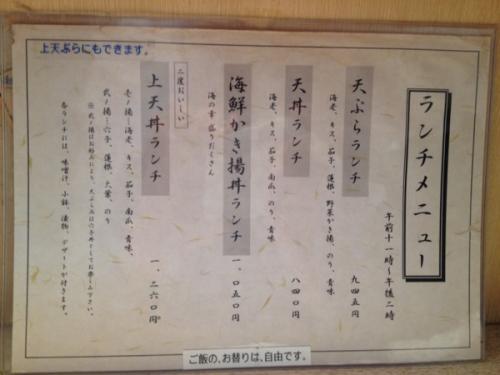 ランチメニュー
午前十一時〜午後二時
天ぷらランチ
海老、キス、茄子、蓮根、野菜かき揚、のり、青味
九四五円
天丼ランチ
海老、キス、茄子、南瓜、のり、青味
八四〇円
海鮮かき揚丼ランチ
海の幸 盛りだくさん
一、〇五〇円
二度おいしい
上天丼ランチ
一、二六〇円
壱ノ揚―海老、キス、茄子、南瓜、青味、
弐ノ揚―穴子、蓮根、大葉、のり
※弐ノ揚はお好みにより、天ぷら又は穴子丼としてお楽しみ下さい。
各ランチには、味噌汁、小鉢、漬物、デザートが付きます。
上天ぷらにもできます。
ご飯の、お替りは、自由です。